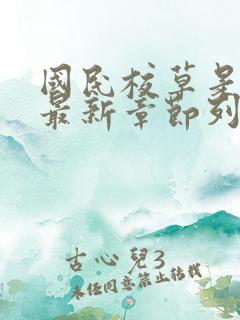 國民校草是
最新章節列
古心兒3
未經同意禁止轉載